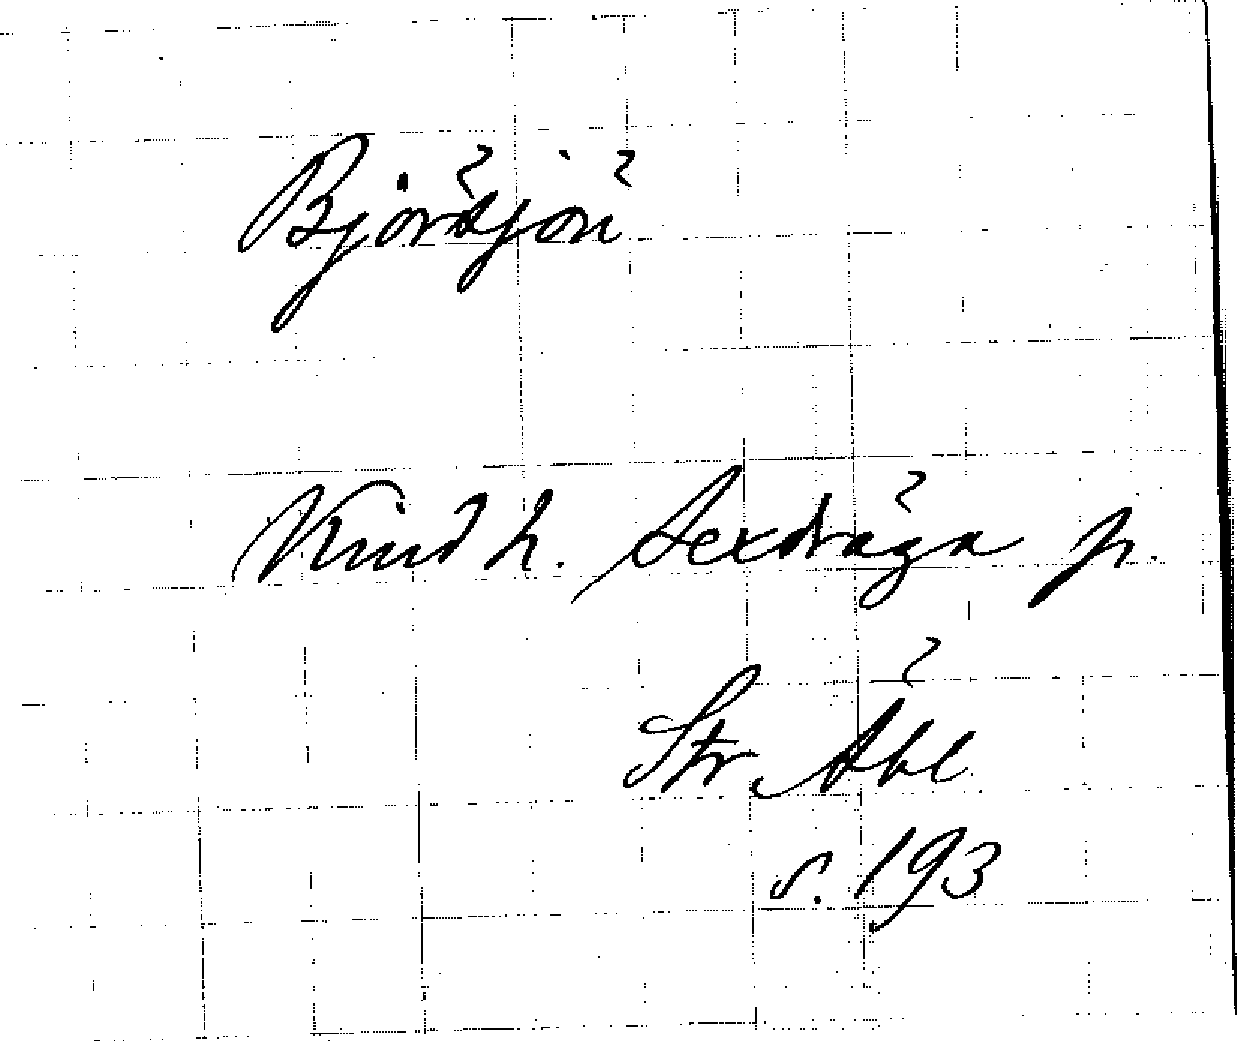 Björsjön
Kind h. Sexdräga p.
Str. Äbl
s. 193